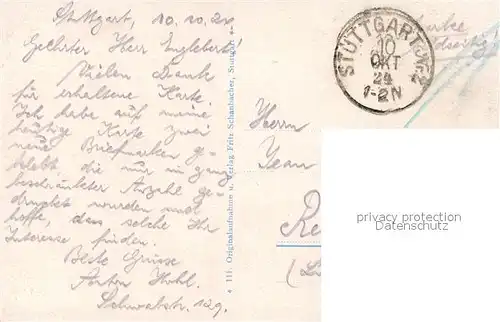 Stuttgart, 10.10.24
Geehrter Herr Englebert!
Vielen Dank
für erhaltene Karte.
Ich habe auf meine
heutige Karte zwei
neue Briefmarken ge-
klebt die mir in ganz
beschränkter Anzahl ge-
druckt wurden und
hoffe, dass solche Ihr
Interesse finden.
Beste Grüsse
Anton Hohl.
Schwabstr. 129.
+ 111. Originalaufnahme u. Verlag Fritz Schanbacher, Stuttgart +
STUTTGART
10
OKT
24
1-2N
Herrn
Jean
Re
(L
privacy protection
Datenschutz